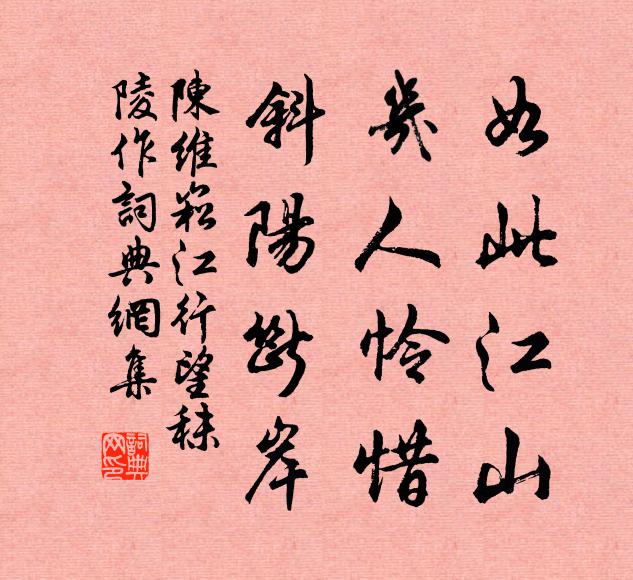 如此江山
幾人怜惜
斜陽斷岸
陳維崧江行望秣
陵作詞典網集
詞典网印